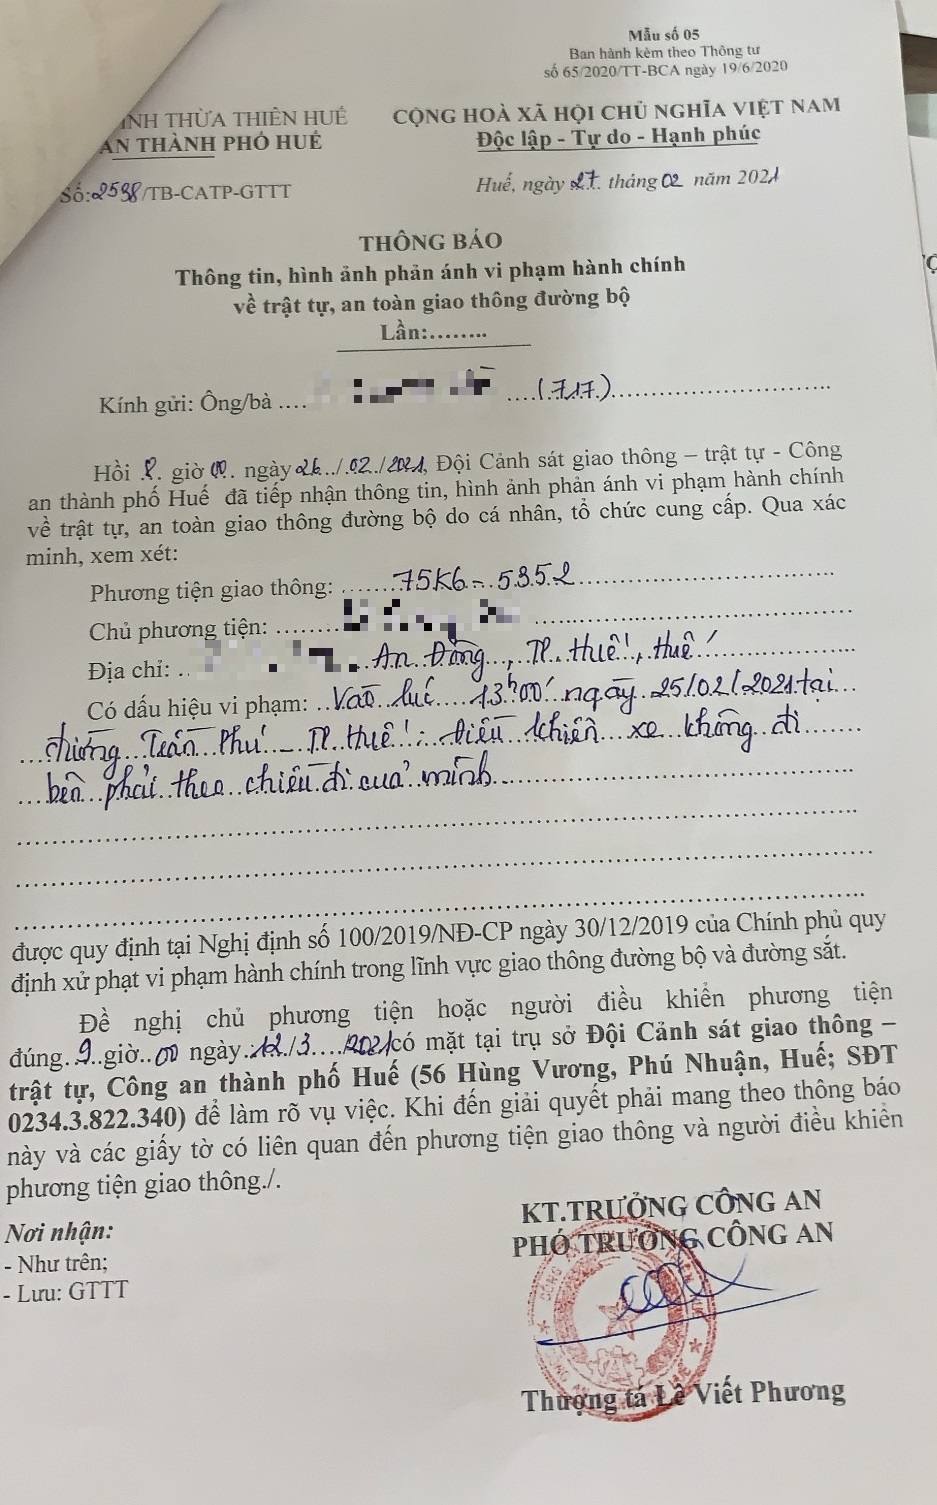 Mẫu số 05
Ban hành kèm theo Thông tư
số 65/2020/TT-BCA ngày 19/6/2020
ỈNH THỪA THIÊN HUẾ
AN THÀNH PHỐ HUẾ
CỘNG HOÀ XÃ HỘI CHỦ NGHĨA VIỆT NAM
Độc lập - Tự do - Hạnh phúc
Số:2598/TB-CATP-GTTT
Huế, ngày 27. tháng 02 năm 2021
THÔNG BÁO
Thông tin, hình ảnh phản ánh vi phạm hành chính
về trật tự, an toàn giao thông đường bộ
Lần:........
Kính gửi: Ông/bà .... ....(717)
Hồi 8. giờ 00.. ngày 26../.02./2021, Đội Cảnh sát giao thông – trật tự - Công
an thành phố Huế đã tiếp nhận thông tin, hình ảnh phản ánh vi phạm hành chính
về trật tự, an toàn giao thông đường bộ do cá nhân, tổ chức cung cấp. Qua xác
minh, xem xét:
Phương tiện giao thông: ......75K6-5352
Chủ phương tiện:
Địa chỉ: .. An Đông, TP. Huế, Huế
Có dấu hiệu vi phạm: ..Vào lúc 13h00' ngày 25/02/2021 tại
đường Trần Phú - TP Huế: Điều khiển xe không đi
bên phải theo chiều đi của mình
được quy định tại Nghị định số 100/2019/NĐ-CP ngày 30/12/2019 của Chính phủ quy
định xử phạt vi phạm hành chính trong lĩnh vực giao thông đường bộ và đường sắt.
Đề nghị chủ phương tiện hoặc người điều khiển phương tiện
đúng..9..giờ..00 ngày.12./3..../2021có mặt tại trụ sở Đội Cảnh sát giao thông –
trật tự, Công an thành phố Huế (56 Hùng Vương, Phú Nhuận, Huế; SĐT
0234.3.822.340) để làm rõ vụ việc. Khi đến giải quyết phải mang theo thông báo
này và các giấy tờ có liên quan đến phương tiện giao thông và người điều khiển
phương tiện giao thông./.
Nơi nhận:
- Như trên;
- Lưu: GTTT
KT.TRƯỞNG CÔNG AN
PHÓ TRƯỞNG CÔNG AN
Thượng tá Lê Viết Phương